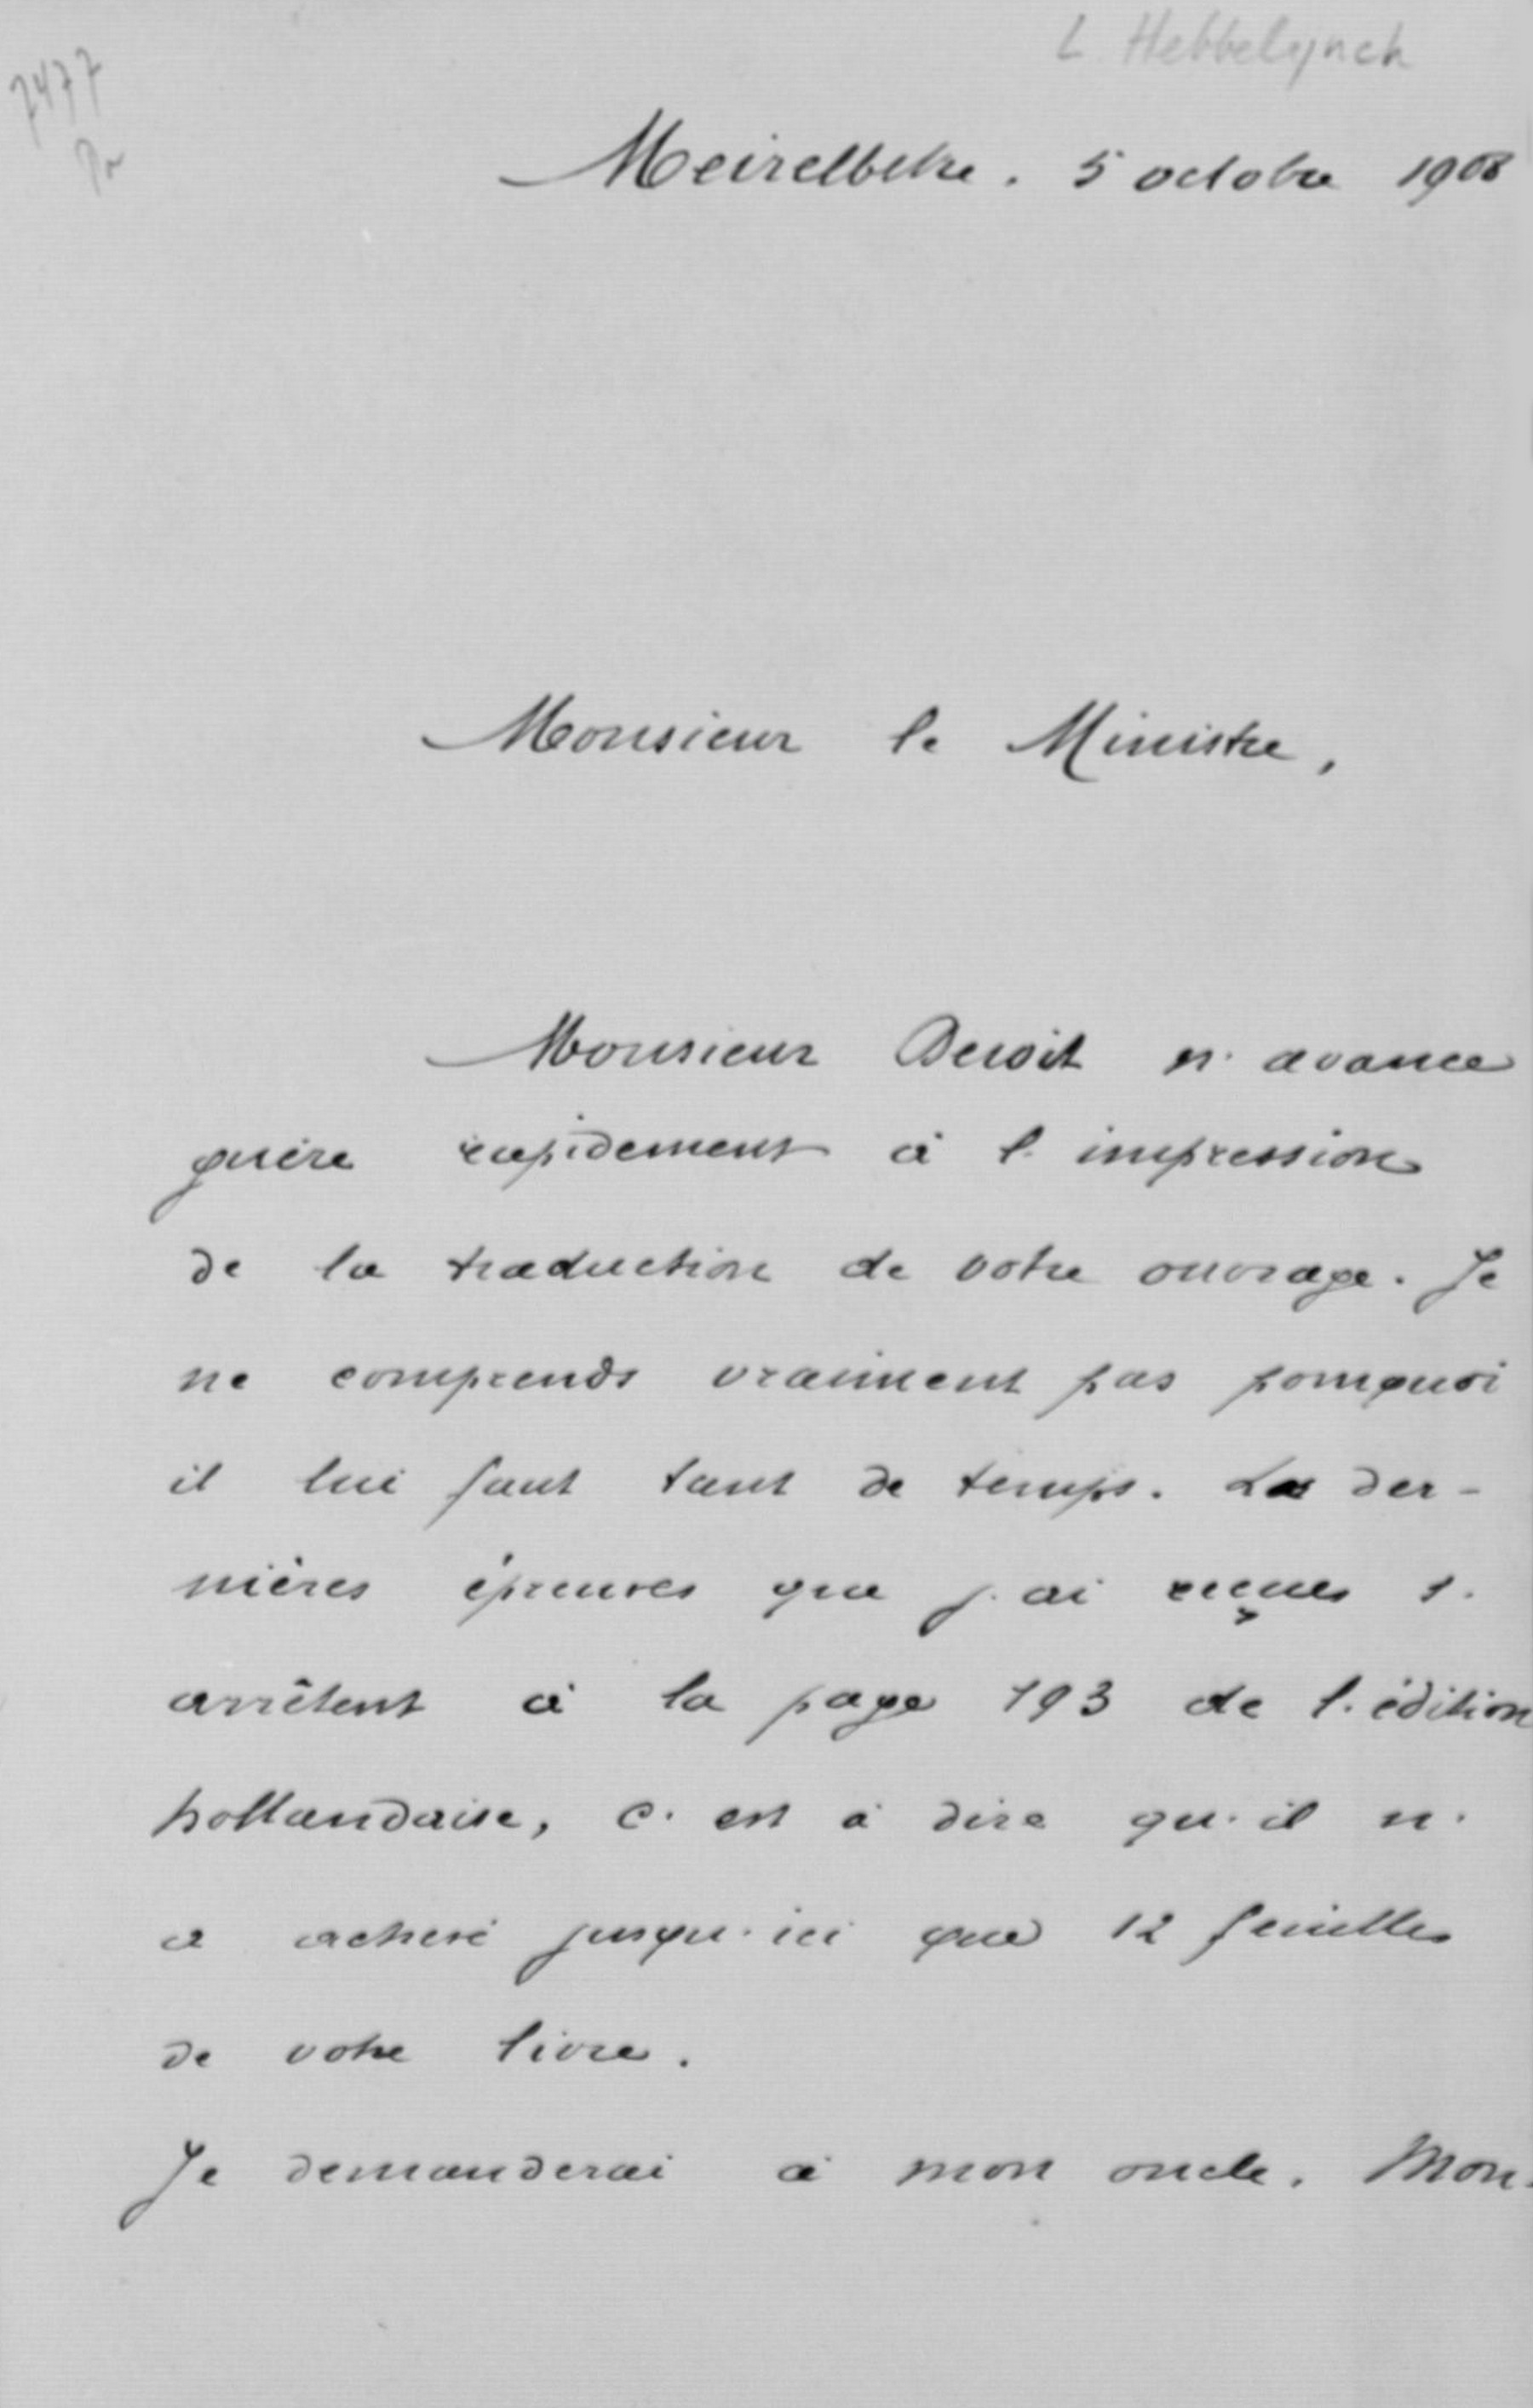 L. Hebbelynck
7477
Pr
Meirelbeke. 5 octobre 1908
Monsieur le Ministre,
Monsieur Benoit n'avance
guère rapidement à l'impression
de la traduction de votre ouvrage. Je
ne comprends vraiment pas pourquoi
il lui faut tant de temps. Les der-
nières épreuves que j'ai reçues s'
arrêtent à la page 193 de l'édition
hollandaise, c'est à dire qu'il n'
a achevé jusqu'ici que 12 feuilles
de votre livre.
Je demanderai à mon oncle, Mon-